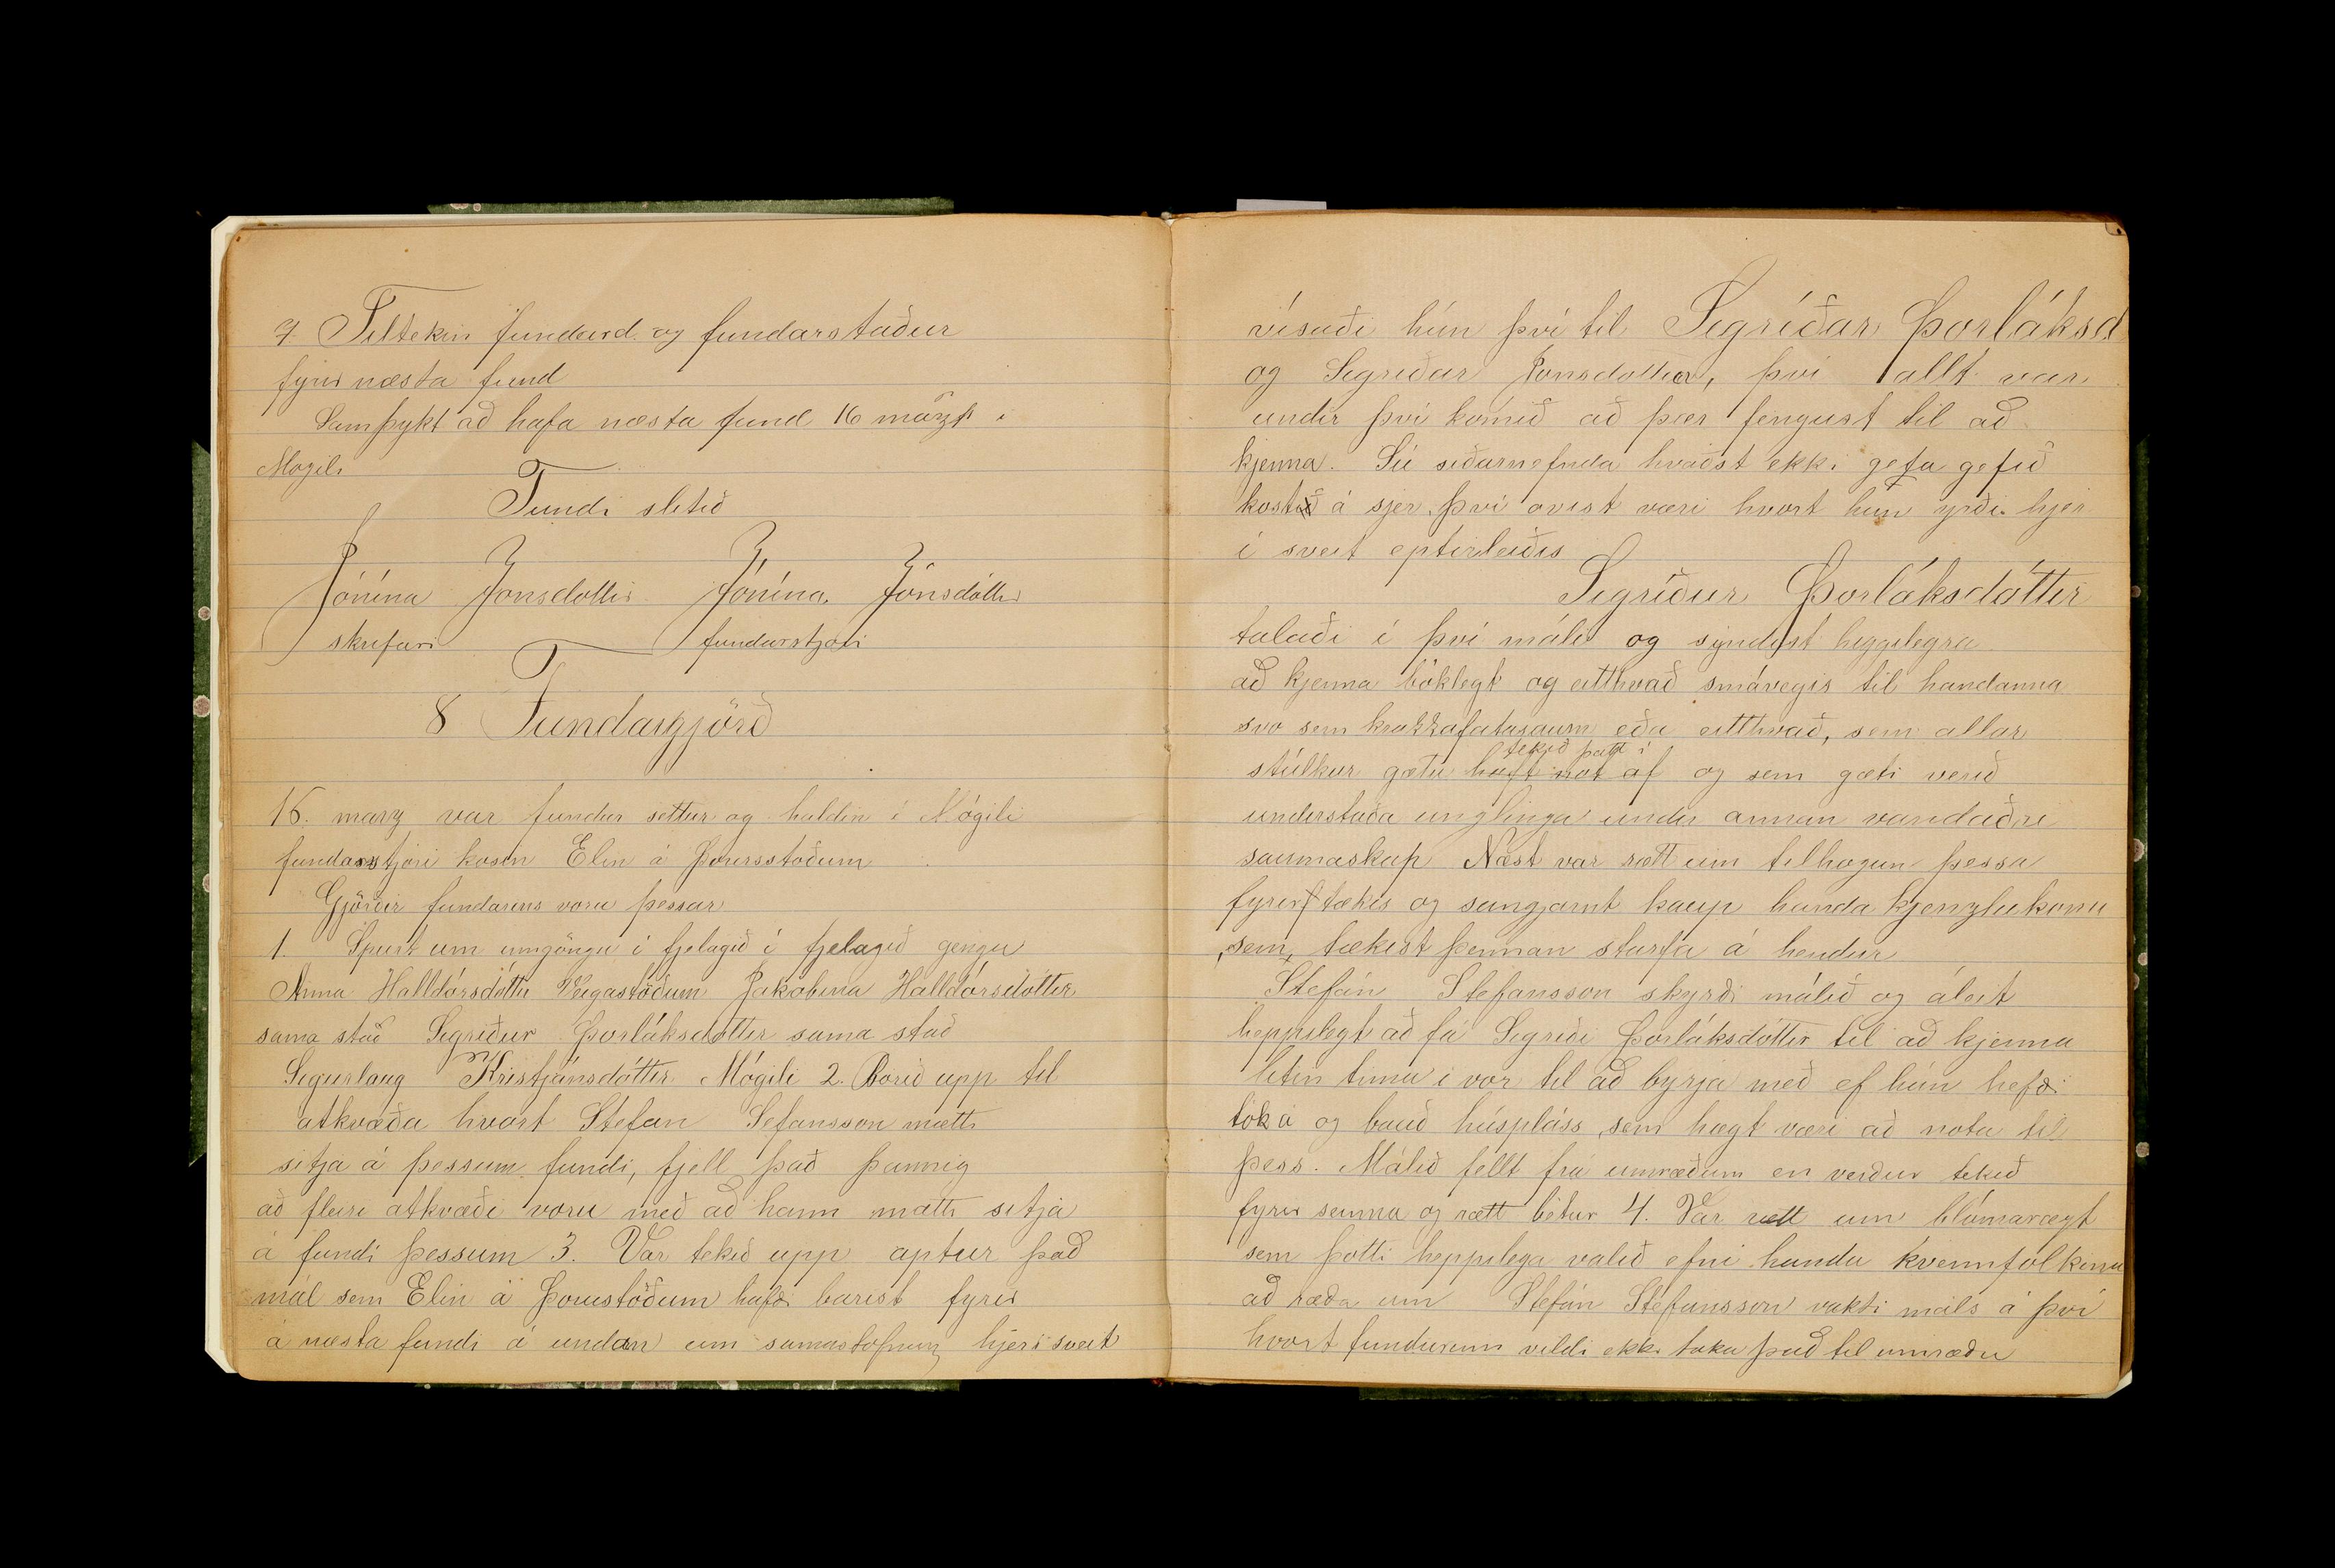 7. Tiltekin fundard. og fundarstaður
fyrir næsta fund
Samþykt að hafa næsta fund 16 marz í
Mógili
Fundi slitið
Jónína Jonsdottir Jónína Jónsdóttir
skrifari fundarstjori
8 Fundargjörð
16. marz var fundur settur og haldin í Mógili
fundarstjóri kosin Elin á Þorisstöðum
Gjörðir fundarins voru þessar
1. Spurt um inngöngu í fjelagið í fjelagið gengu
Anna Halldórsdóttir Veigastöðum Jakobína Halldórsdóttir
sama stað Sigriður Þorláksdottir sama stað
Sigurlaug Kristjánsdóttir Mógili 2. Borið upp til
atkvæða hvort Stefan Sefansson mætti
sitja á þessum fundi, fjell það þannig
að fleiri atkvæði voru með að hann mætti sitja
á fundi þessum 3. Var tekið upp aptur það
mál sem Elin á Þorustöðum hafði barist fyrir
á næsta fundi á undan um saumastofnun hjer í sveit
vísaði hún því til Sigríðar Þorláksd
og Sigríðar Jónsdottur, því allt var
undir því komið að þær fengust til að
kjenna. Sú síðarnefnda kvaðst ekki gefa gefið
kost á sjer, því ovist væri hvort hún yrði hjer
í sveit eptirleiðis
Sigríður Þorláksdóttir
talaði í því máli og syndist heppilegra
að kjenna bóklegt og eitthvað smávegis til handanna
svo sem krakkafatasaum eða eitthvað, sem allar
tekið þátt í
stúlkur gætu haft not af og sem gæti verið
understaða unglinga undir annan vandaðri
saumaskap Næst var rætt um tilhogun þessa
fyrirtækis og sangjarnt kaup handa kjenzlukonu
sem, tækist þennan starfa á hendur
Stefán Stefansson skyrði málið og áleit
heppilegt að fá Sigriði Þorláksdóttir til að kjenna
litin tíma í vor til að byrja með ef hún hefði
tök á og bauð húspláss, sem hægt væri að nota til
þess. Málið fellt frá umræðum en verður tekið
fyrir seinna og rætt betur 4. Var rætt um blómarægt
sem þotti heppilega valið efni handa kvennfolkinu
að ræða um Stefán Stefansson vakti máls á því
hvort fundurinn vildi ekki taka það til umræðu